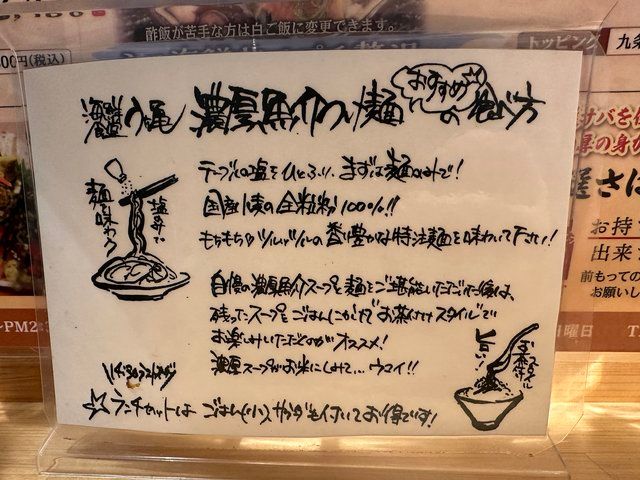 酢飯が苦手な方は白ご飯に変更できます。
00円(税込)
トッピング
九条
濃厚魚介つけ麺 おすすめの食べ方
テーブルの塩をひとふり、まずは麺だけで!
国産小麦の全粒粉100%!!
もちもちツルッツルの香り豊かな特注麺を味わって下さい!
塩分で
麺を味わう
自慢の濃厚魚介スープと麺をご堪能いただいた後は、
残ったスープをごはんにかけて"お茶付けスタイル"で
お楽しみいただくのがオススメ!
濃厚スープがお米にしみて...ウマイ!!
旨い
お茶付けスタイル
☆ランチセットは ごはん(小)サラダも付いてお得です!
サバを使
厚の身が
選さば
お持ち
出来
前もっての
お願いし
~PM2:3
曜日